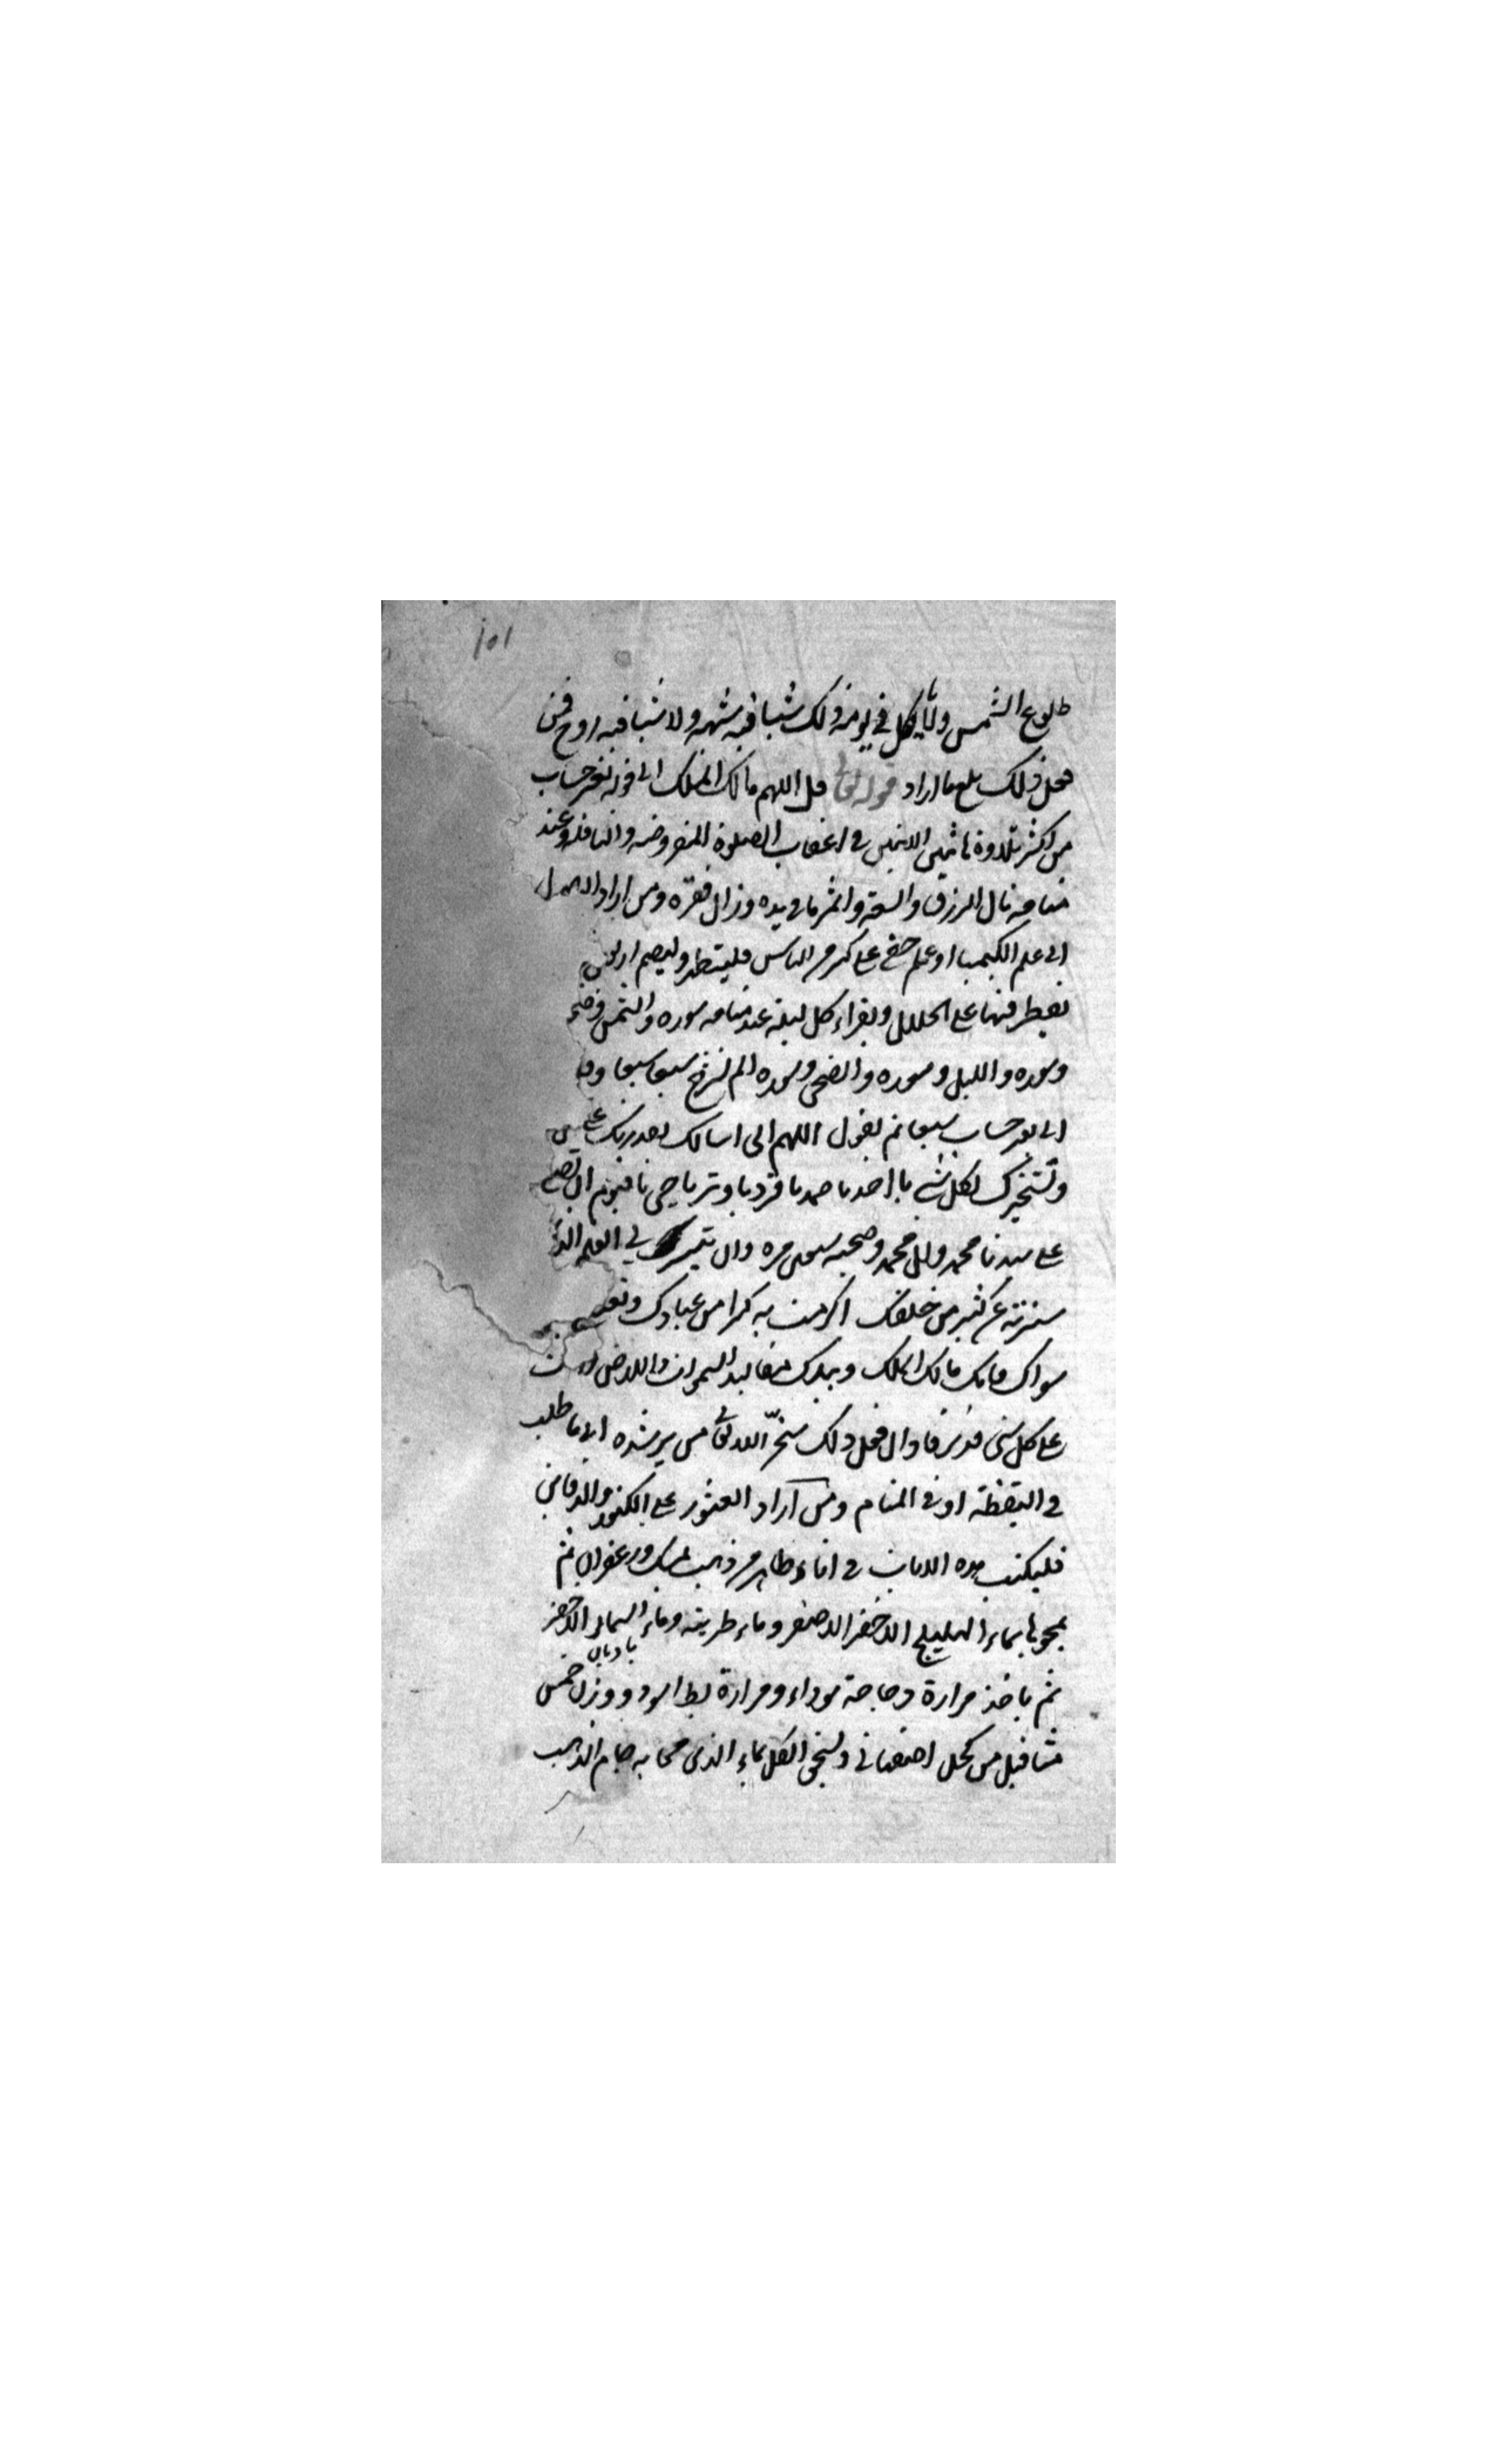 ١٥١
طلوع الشمس ولا ياكل في يومه ذلك شيا فيه شهوه ولا شيا فيه روح فمن
فعل ذلك بلغ ما اراد قوله تعالى قل اللهم مالك الملك الى قوله بغير حساب
من اكثر تلاوة هاتين الايتين في اعقاب الصلوة المفروضه والنافله وعند
منامه نال الرزق والسعة واثمر ما في يده وزال فقره ومن اراد
الى علم الكيميا او علم خفي على كثير من الناس فليتطهر وليصم اربعين
يفطر فيها على الحلال ويقراء كل ليله عند منامه سوره والشمس وضحها
وسوره والليل وسوره والضحى وسوره الم نشرح سبعا سبعا
الى بغير حساب سبعا ثم يقول اللهم اني اسالك بقدرتك على
وتسخيرك لكل شي يا احد يا صمد يا فرد يا وتر يا حي يا قيوم ان تصلي
على سيدنا محمد وال محمد وصحبه سبعين مره وان تيسر لي العلم الذي
سترته عن كثير من خلقك اكرمت به كثيرا من عبادك
سواك فانك مالك الملك وبيدك مقاليد السموات والارض وانت
على كل شي قدير فاوان فعل ذلك سخر الله تعالى من يرشده الى ما طلب
في اليقظة او في المنام ومن اراد العثور على الكنوز والدفاين
فليكتب هذه الايات في اناء طاهر من ذهب بمسك وزعفران ثم
يمحوها بماء الهليلج الاخضر الاصفر وماء طريته وماء السمار الاخضر
باديان
ثم ياخذ مرارة دجاجة سوداء ومرارة بط اسود ووزن خمس
مثاقيل من كحل اصفهاني ويسحق الكل بماء الذي محا به جام الذهب